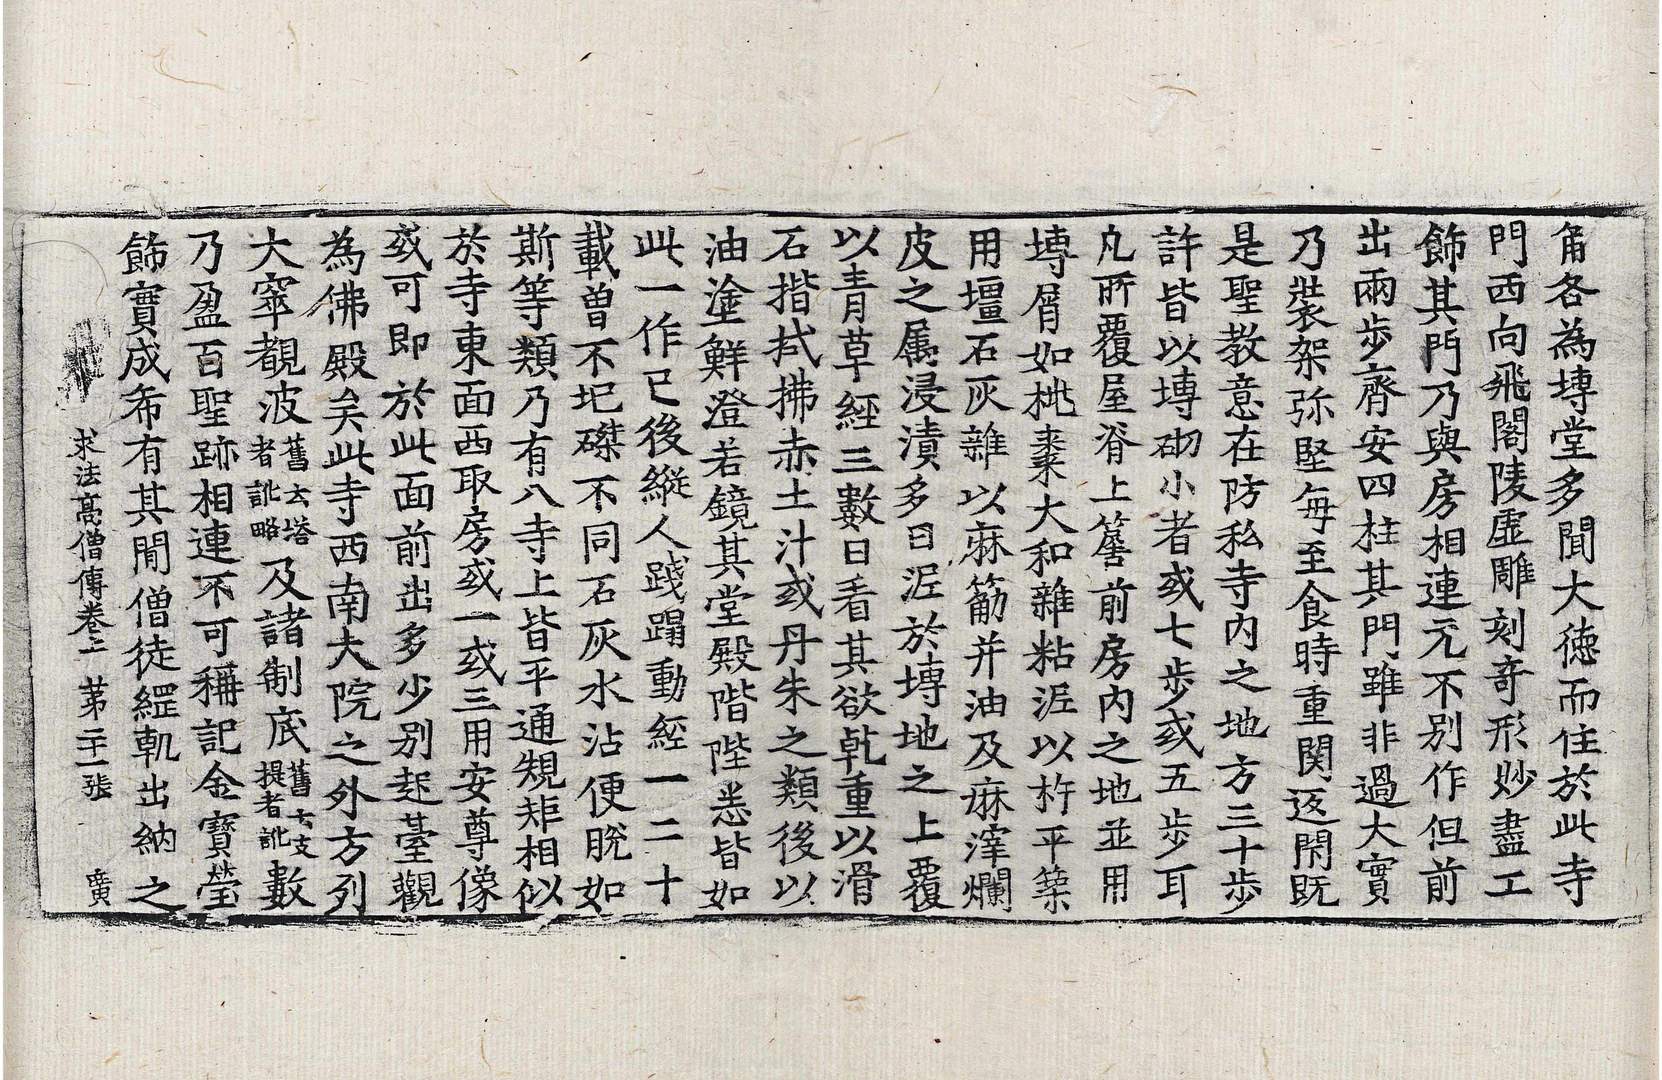 角各為塼堂多聞大德而住於此寺
門西向飛閣陵虛雕刻奇形妙盡工
飾其門乃與房相連元不別作但前
出兩步齊安四柱其門雖非過大實
乃裝架弥堅每至食時重関返閇既
是聖教意在防私寺內之地方三十步
許皆以塼砌小者或七步或五步耳
凡所覆屋脊上簷前房內之地並用
塼屑如桃棗大和雜粘泥以杵平築
用壃石灰雜以麻筋并油及麻滓爛
皮之属浸漬多日泥於塼地之上覆
以青草經三數日看其欲乹重以滑
石揩拭拂赤土汁或丹朱之類後以
油塗鮮澄若鏡其堂殿階陛悉皆如
此一作已後縱人踐蹋動經一二十
載曾不圮磔不同石灰水沾便脫如
斯等類乃有八寺上皆平通規矩相似
於寺東面西取房或一或三用安尊像
或可即於此面前出多少別起臺觀
為佛殿矣此寺西南大院之外方列
大窣覩波舊云塔者訛略及諸制底舊云支提者訛數
乃盈百聖跡相連不可稱記金寶瑩
飾實成希有其間僧徒綱軌出納之
求法高僧傳卷上 第二十一張 廣